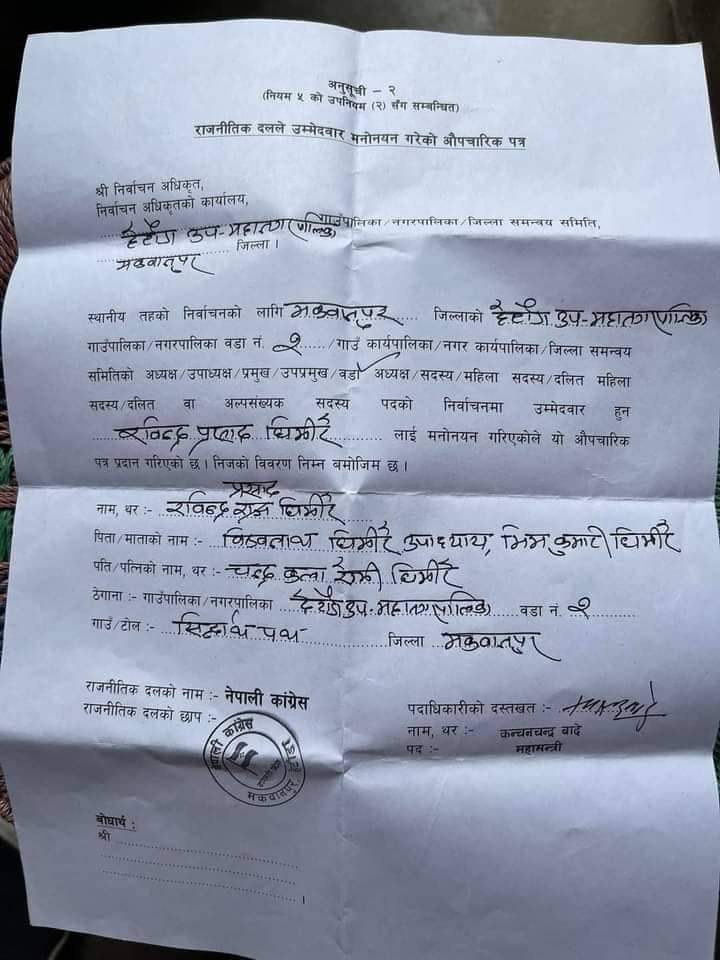 अनुसूची - २
(नियम ५ को उपनियम (२) सँग सम्बन्धित)
राजनीतिक दलले उम्मेदवार मनोनयन गरेको औपचारिक पत्र
श्री निर्वाचन अधिकृत,
निर्वाचन अधिकृतको कार्यालय,
हेटौंडा उप-महानगरपालिका गाउँपालिका/नगरपालिका/जिल्ला समन्वय समिति,
मकवानपुर जिल्ला।
स्थानीय तहको निर्वाचनको लागि मकवानपुर जिल्लाको हेटौंडा उप-महानगरपालिका
गाउँपालिका/नगरपालिका वडा नं. २ /गाउँ कार्यपालिका/नगर कार्यपालिका/जिल्ला समन्वय
समितिको अध्यक्ष/उपाध्यक्ष/प्रमुख/उपप्रमुख/वडा अध्यक्ष/सदस्य/महिला सदस्य/दलित महिला
सदस्य/दलित वा अल्पसंख्यक सदस्य पदको निर्वाचनमा उम्मेदवार हुन
रविन्द्र प्रसाद घिमीरे लाई मनोनयन गरिएकोले यो औपचारिक
पत्र प्रदान गरिएको छ। निजको विवरण निम्न बमोजिम छ।
प्रसाद
नाम, थर :- रविन्द्र घिमीरे
पिता/माताको नाम :- विश्वनाथ घिमीरे उपाध्याय, भिम कुमारी घिमीरे
पति/पत्निको नाम, थर :- चन्द्र कला रेग्मी घिमीरे
ठेगाना :- गाउँपालिका/नगरपालिका हेटौंडा उप-महानगरपालिका वडा नं. २
गाउँ/टोल :- सिद्धार्थ पथ जिल्ला मकवानपुर
राजनीतिक दलको नाम :- नेपाली कांग्रेस
राजनीतिक दलको छाप :-
नेपाली कांग्रेस
मकवानपुर
पदाधिकारीको दस्तखत :-
नाम, थर :- कन्चनचन्द्र बादे
पद :- महामन्त्री
बोधार्थ :
श्री